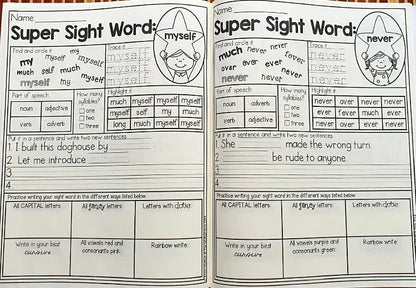 Name
Super Sight Word:
myself
Find and circle it
Trace it
my myself myself
myself
much self much
myself my myself
myself
myself
myself
Part of speech
How many syllables?
Highlight it
noun adjective
verb adverb
one
two
three
much myself myself myself
myself self my much
long much myself myself
Put it in a sentence and write two new sentences
1. I built this doghouse by
2. Let me introduce
3.
4.
Practice writing your sight word in the different ways listed below.
All CAPITAL letters
All fancy letters
Letters with dots
Write in your best cursive
All vowels red and consonants pink
Rainbow write
Name
Super Sight Word:
never
Find and circle it
Trace it
much never never
never
over ever never
never
never
never
Part of speech
How many syllables?
Highlight it
noun adverb
verb adjective
one
two
three
never over never never
ever never much ever
never over ever never
Put it in a sentence and write two new sentences
1. She made the wrong turn.
2. be rude to anyone.
3.
4.
Practice writing your sight word in the different ways listed below.
All CAPITAL letters
All fancy letters
Letters with dots
Write in your best cursive
All vowels purple and consonants green
Rainbow write